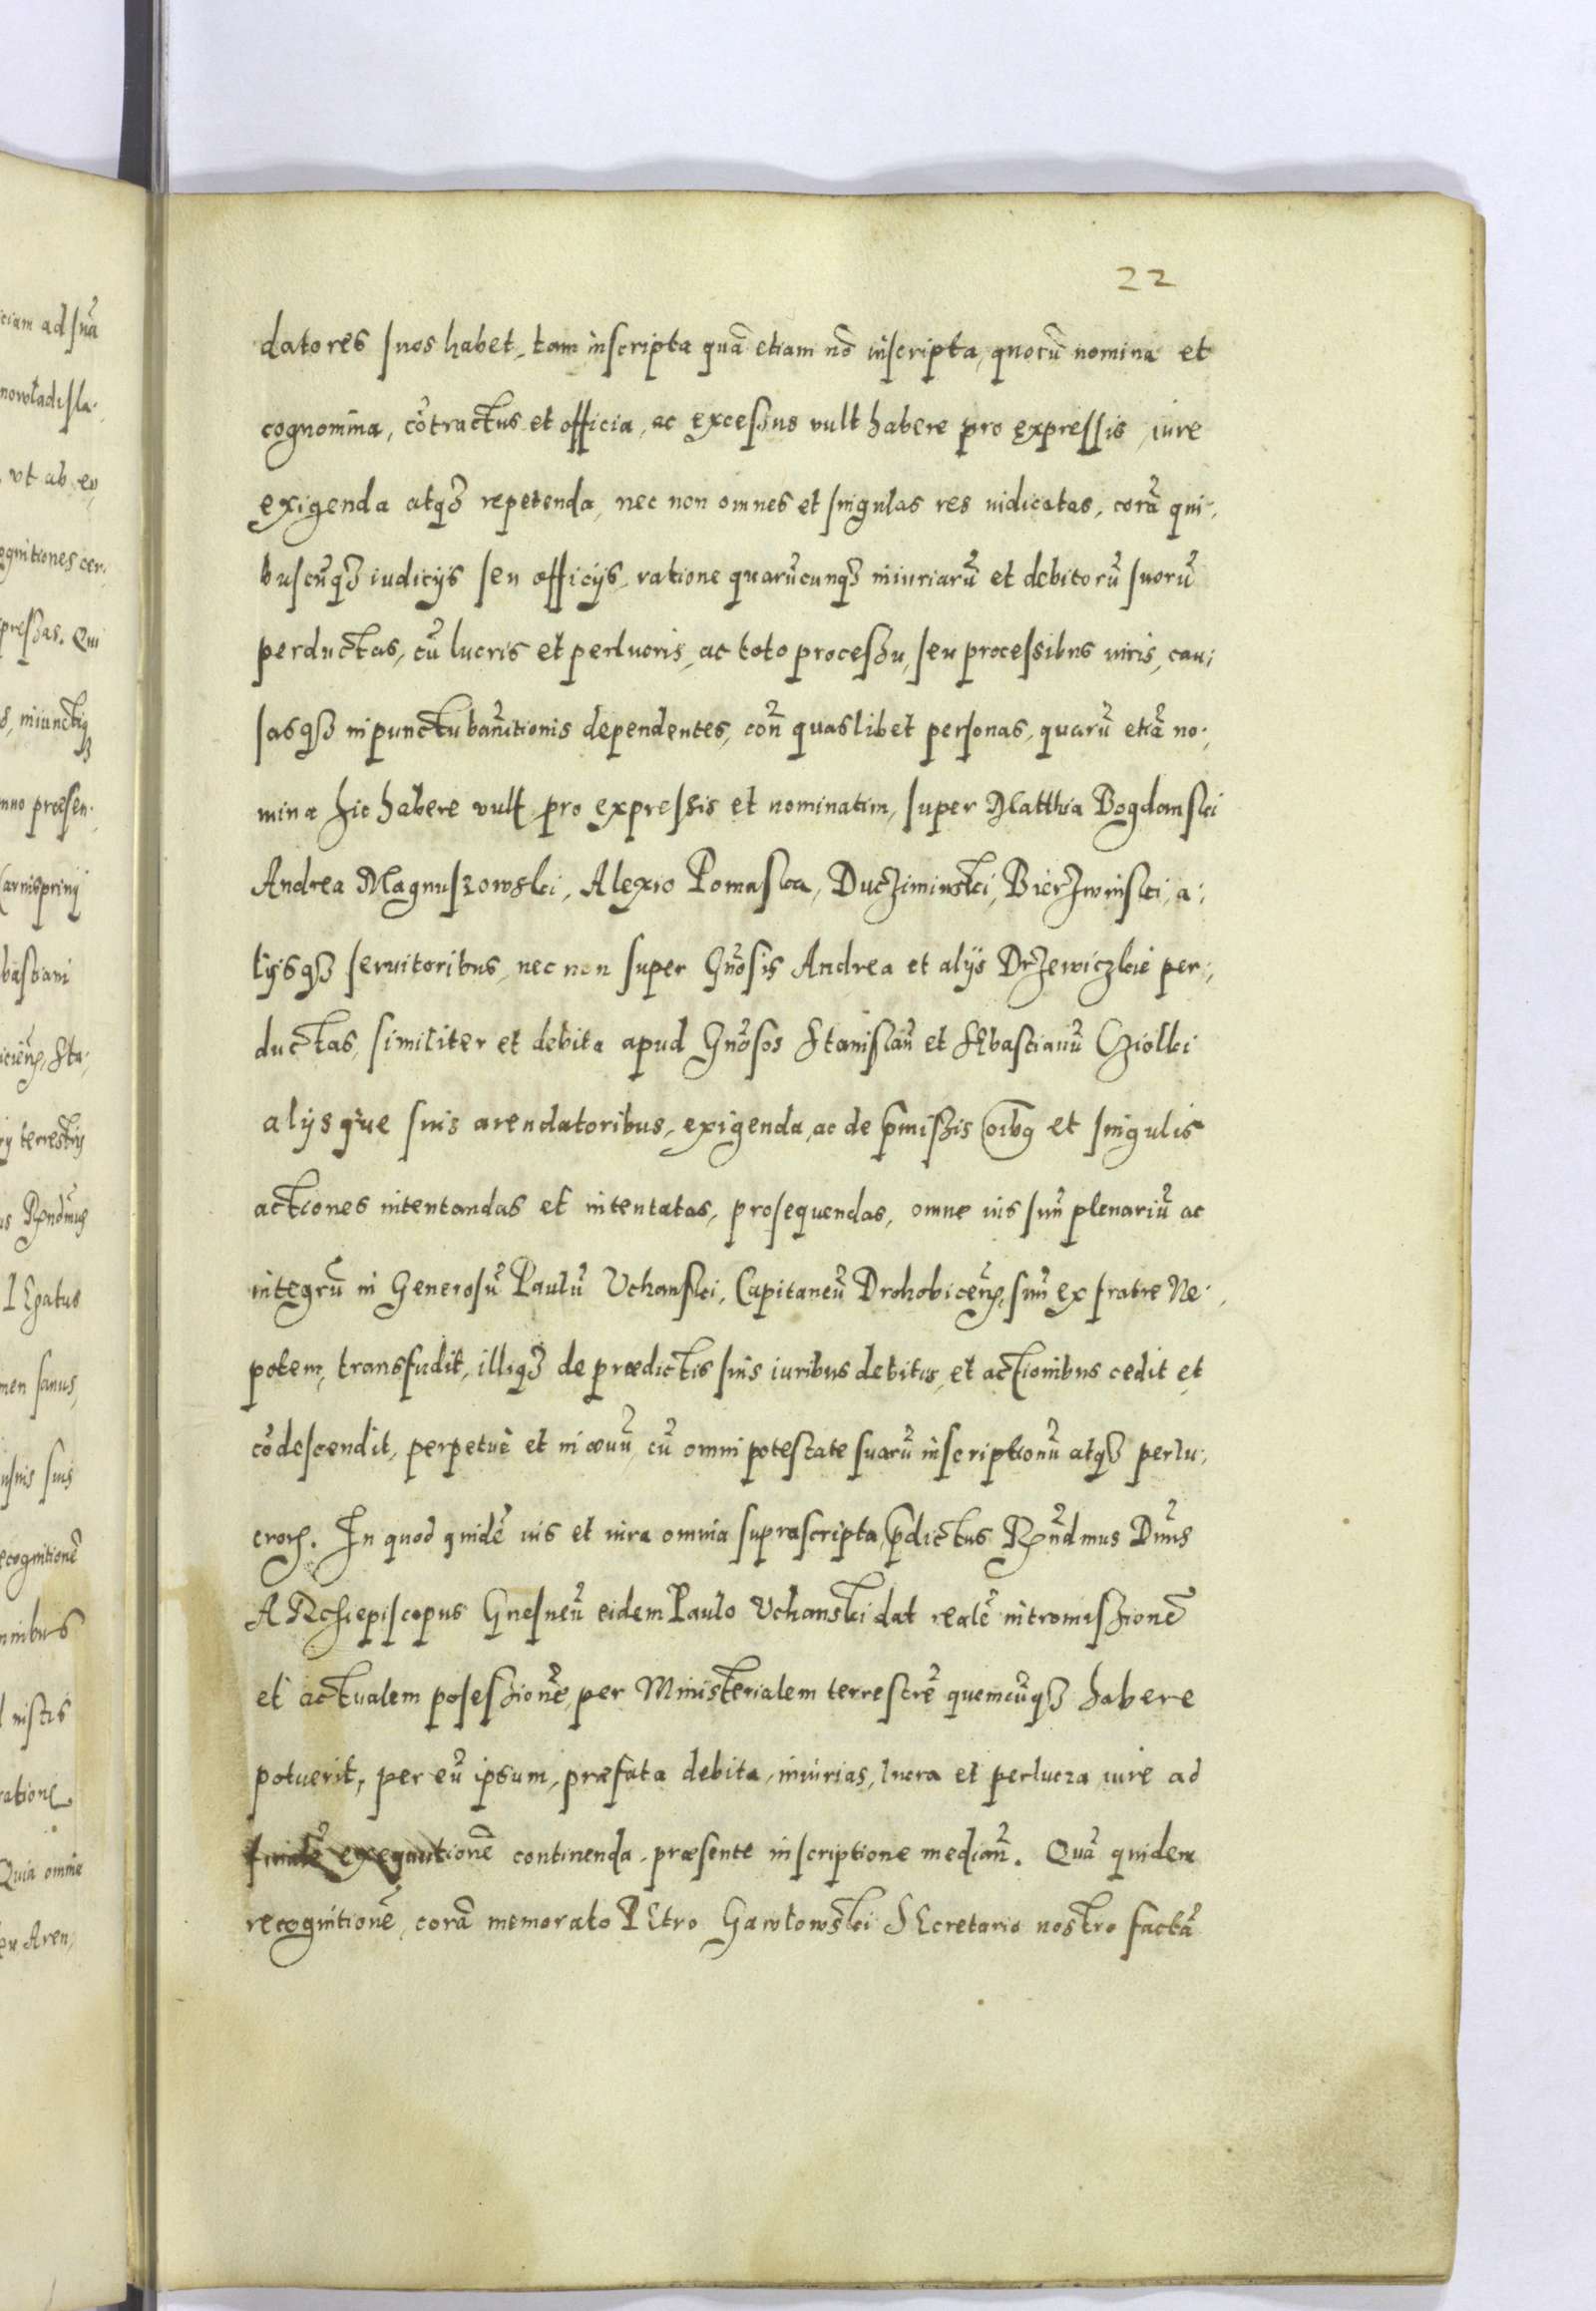 22
datores suos habet, tam inscripta quã etiam nõ inscripta, quorũ nomina et
cognomina, cõtractus et officia, ac excessus vult habere pro expressis, iure
exigenda atq3 repetenda, nec non omnes et singulas res iudicatas, corã qui-
buscũq3 iudicijs seu officijs, ratione quarũcunq3 iniuriarũ et debitorũ suorũ
perductas, cũ lucris et perlucris, ac toto processu, seu processibus iuris, cau-
sasq3 in punctu banitionis dependentes, coñ quaslibet personas, quarũ etiã no-
mina hic habere vult pro expressis et nominatim, super Matthia Bogdanski
Andrea Magnuszowski, Alexio Pomaska, Ducziminski, Bierzwinski, a-
lijsq3 seruitoribus, nec non super Gñosis Andrea et alijs Drzewiczkie per-
ductas, similiter et debita apud Gñosos Stanislaũ et SEbastianũ Cziolki
alijsque suis arendatoribus, exigenda, ac de p̃missis oĩbq et singulis
actiones intentandas et intentatas, prosequendas, omne ius suũ plenariũ ac
integrũ in Generosũ Paulũ Vchanski, Capitaneũ Drohobiceñ, suũ ex fratre Ne-
potem, transfudit, illiq3 de prædictis suis iuribus debitis, et actionibus cedit et
cõdescendit, perpetuè et in æuũ, cũ omni potestate suarũ inscriptionũ atq3 perlu-
croꝝ. In quod quidẽ ius et iura omnia suprascripta, p̃dictus Rñdmus Dñus
ARchiepiscopus Gnesneñ eidem Paulo Vchanski dat realẽ intromissionẽ
et actualem posessionẽ, per Ministerialem terrestrẽ quemcũq3 habere
potuerit, per eũ ipsum, præfata debita, iniurias, lucra et perlucra, iure ad
finalẽ exequutionẽ continenda, præsente inscriptione mediañ. Quã quidem
recognitionẽ, corã memorato PEtro Gawłowski SEcretario nostro factã